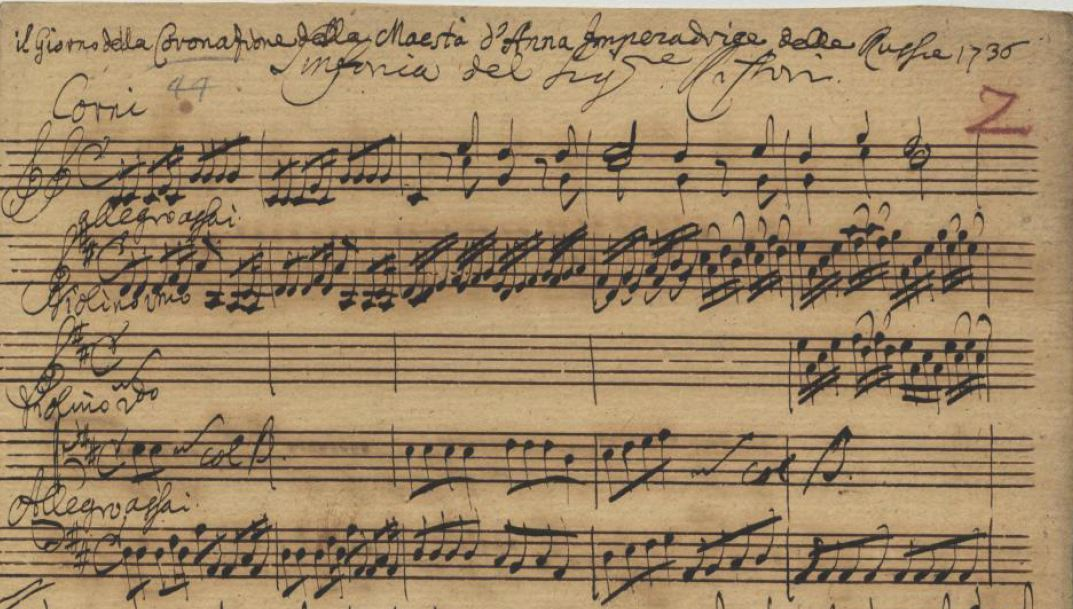 il Giorno della Coronazione della Maestà d'Anna Imperadrice delle Russie 1736
Sinfonia del Sig.re Ristori.
44
Corni
2
allegro assai.
Violino primo
Violino 2do
col B.
col B.
Allegro assai.